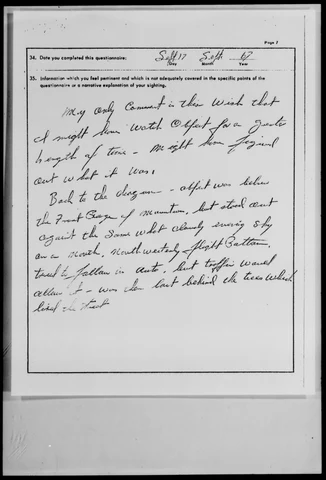 Page 7
34. Date you completed this questionnaire: Sept 17 Sept 67
Day Month Year
35. Information which you feel pertinent and which is not adequately covered in the specific points of the
questionnaire or a narrative explanation of your sighting.
My only Comment is the Wish that
I might have watch Object for a
length of time - Might have figured
out what it was.
Back to the - object was below
the Front Range of Mountains, but stood out
against the some what evening sky
on a North, Northwesterly flight Pattern,
tried to follow in auto, but traffic would
allow it - was then lost behind the trees which
lined the street